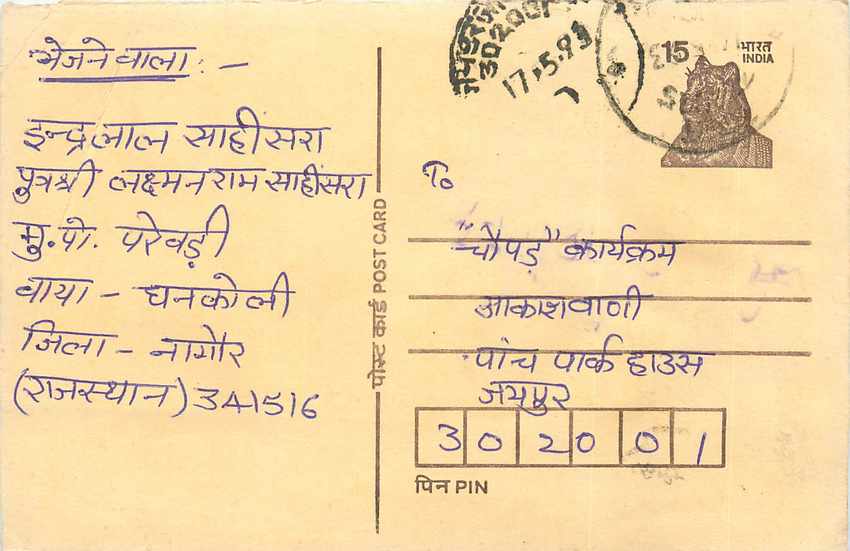 भेजने वाला :-
इन्द्रलाल साहींसरा
पुत्रश्री लक्ष्मनराम साहींसरा
मु. पो. परेवड़ी
वाया - घनकोली
जिला - नागौर
(राजस्थान) 341516
पोस्ट कार्ड POST CARD
302001
17.5.93
15 भारत
INDIA
To
"चौपड़" कार्यक्रम
आकाशवाणी
पांच पार्क हाउस
जयपुर
302001
पिन PIN